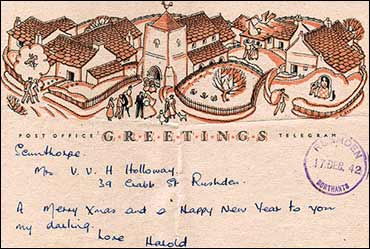 POST OFFICE GREETINGS TELEGRAM
Scunthorpe
Mrs V. V. H Holloway.
39 Crabb St Rushden.
RUSHDEN
17 DEC. 42
NORTHANTS
A Merry Xmas and a Happy New Year to you
my darling.
Love Harold